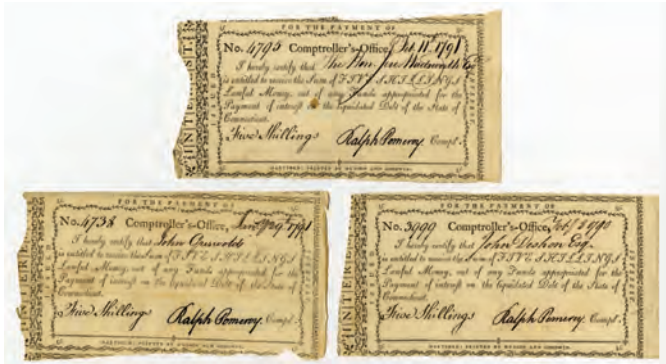 FOR THE PAYMENT OF
INTEREST.
ISSUED
No. 4795 Comptroller's-Office, Feb. 11th 1791
I hereby certify that The Hon. Jere Wadsworth Esq
is entitled to receive the Sum of FIVE SHILLINGS
Lawful Money, out of any Funds appropriated for the
Payment of interest on the liquidated Debt of the State of
Connecticut.
Five Shillings Ralph Pomeroy. Compt.
HARTFORD: PRINTED BY HUDSON AND GOODWIN.
FOR THE PAYMENT OF
INTERE
No. 4738 Comptroller's-Office, 29th 1791
I hereby certify that John
is entitled to receive the Sum of FIVE SHILLINGS
Lawful Money, out of any Funds appropriated for the
Payment of interest on the liquidated Debt of the State of
Connecticut.
Five Shillings Ralph Pomeroy. Compt.
HARTFORD: PRINTED BY HUDSON AND GOODWIN.
FOR THE PAYMENT OF
INTERE
No. 3999 Comptroller's-Office, 1790
I hereby certify that John Deshon Esq.
is entitled to receive the Sum of FIVE SHILLINGS
Lawful Money, out of any Funds appropriated for the
Payment of interest on the liquidated Debt of the State of
Connecticut.
Five Shillings Ralph Pomeroy. Compt.
HARTFORD: PRINTED BY HUDSON AND GOODWIN.